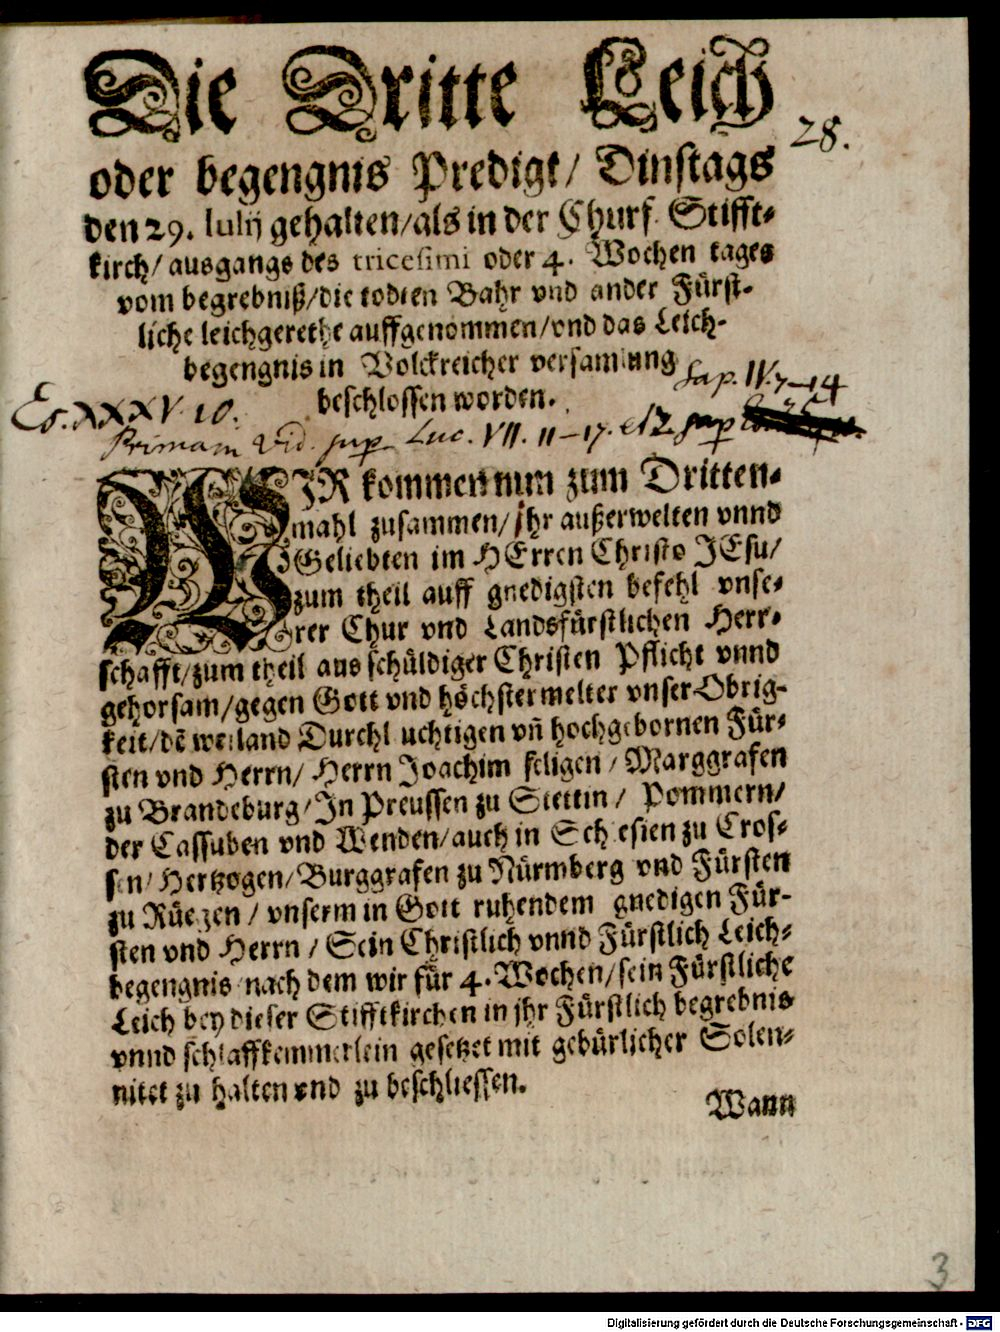 Die Dritte Leich
28.
oder begengnis Predigt/ Dinstags
den 29. Iulij gehalten/als in der Churf. Stifft-
kirch/ ausgangs des tricesimi oder 4. Wochen tages
vom begrebniß/die todten Bahr vnd ander Fürst-
liche leichgerethe auffgenommen/vnd das Leich-
begengnis in Volckreicher versamlung
beschlossen worden.
Sap. IV. 7–14
Es. XXXV 10.
Primam vid. sup. Luc. VII. 11–17. et 2. sup
WIR kommen nun zum Dritten-
mahl zusammen/ jhr außerwelten vnnd
Geliebten im HErren Christo JEsu/
zum theil auff gnedigsten befehl vnse-
rer Chur vnd Landsfürstlichen Herr-
schafft/zum theil aus schüldiger Christen Pflicht vnnd
gehorsam/gegen Gott vnd höchstermelter vnser Obrig-
keit/dē weiland Durchl uchtigen vn̄ hochgebornen Für-
sten vnd Herrn/ Herrn Joachim seligen / Marggrafen
zu Brandeburg/In Preussen zu Stettin / Pommern/
der Cassuben vnd Wenden/auch in Sch esien zu Cros-
sen/ Hertzogen/Burggrafen zu Nürmberg vnd Fürsten
zu Rüegen / vnserm in Gott ruhendem gnedigen Für-
sten vnd Herrn / Sein Christlich vnnd Fürstlich Leich-
begengnis nach dem wir für 4. Wochen/sein Fürstliche
Leich bey dieser Stifftkirchen in jhr Fürstlich begrebnis
vnnd schlaffkemmerlein gesetzet mit gebürlicher Solen-
nitet zu halten vnd zu beschliessen.
Wann
3
Digitalisierung gefördert durch die Deutsche Forschungsgemeinschaft - DFG